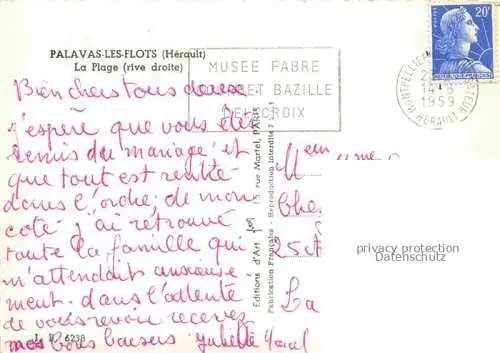 PALAVAS-LES-FLOTS (Hérault)
La Plage (rive droite)
MUSEE FABRE
ET BAZILLE
DELACROIX
20F
MONTPELLIER
14-8
1959
HERAULT
Bien chers tous deux
j'espère que vous êtes
remis du mariage et
que tout est rentré
dans l'ordre; de mon
coté j'ai retrouvé
toute la famille qui
m'attendait anxieuse
ment. dans l'attente
de vous revoir recevez
mes bons baisers
L. D. 6238
Editions d'Art
15 rue Martel, PARIS
Fabrication Française - Reproduction interdite
Che
25
La
privacy protection
Datenschutz